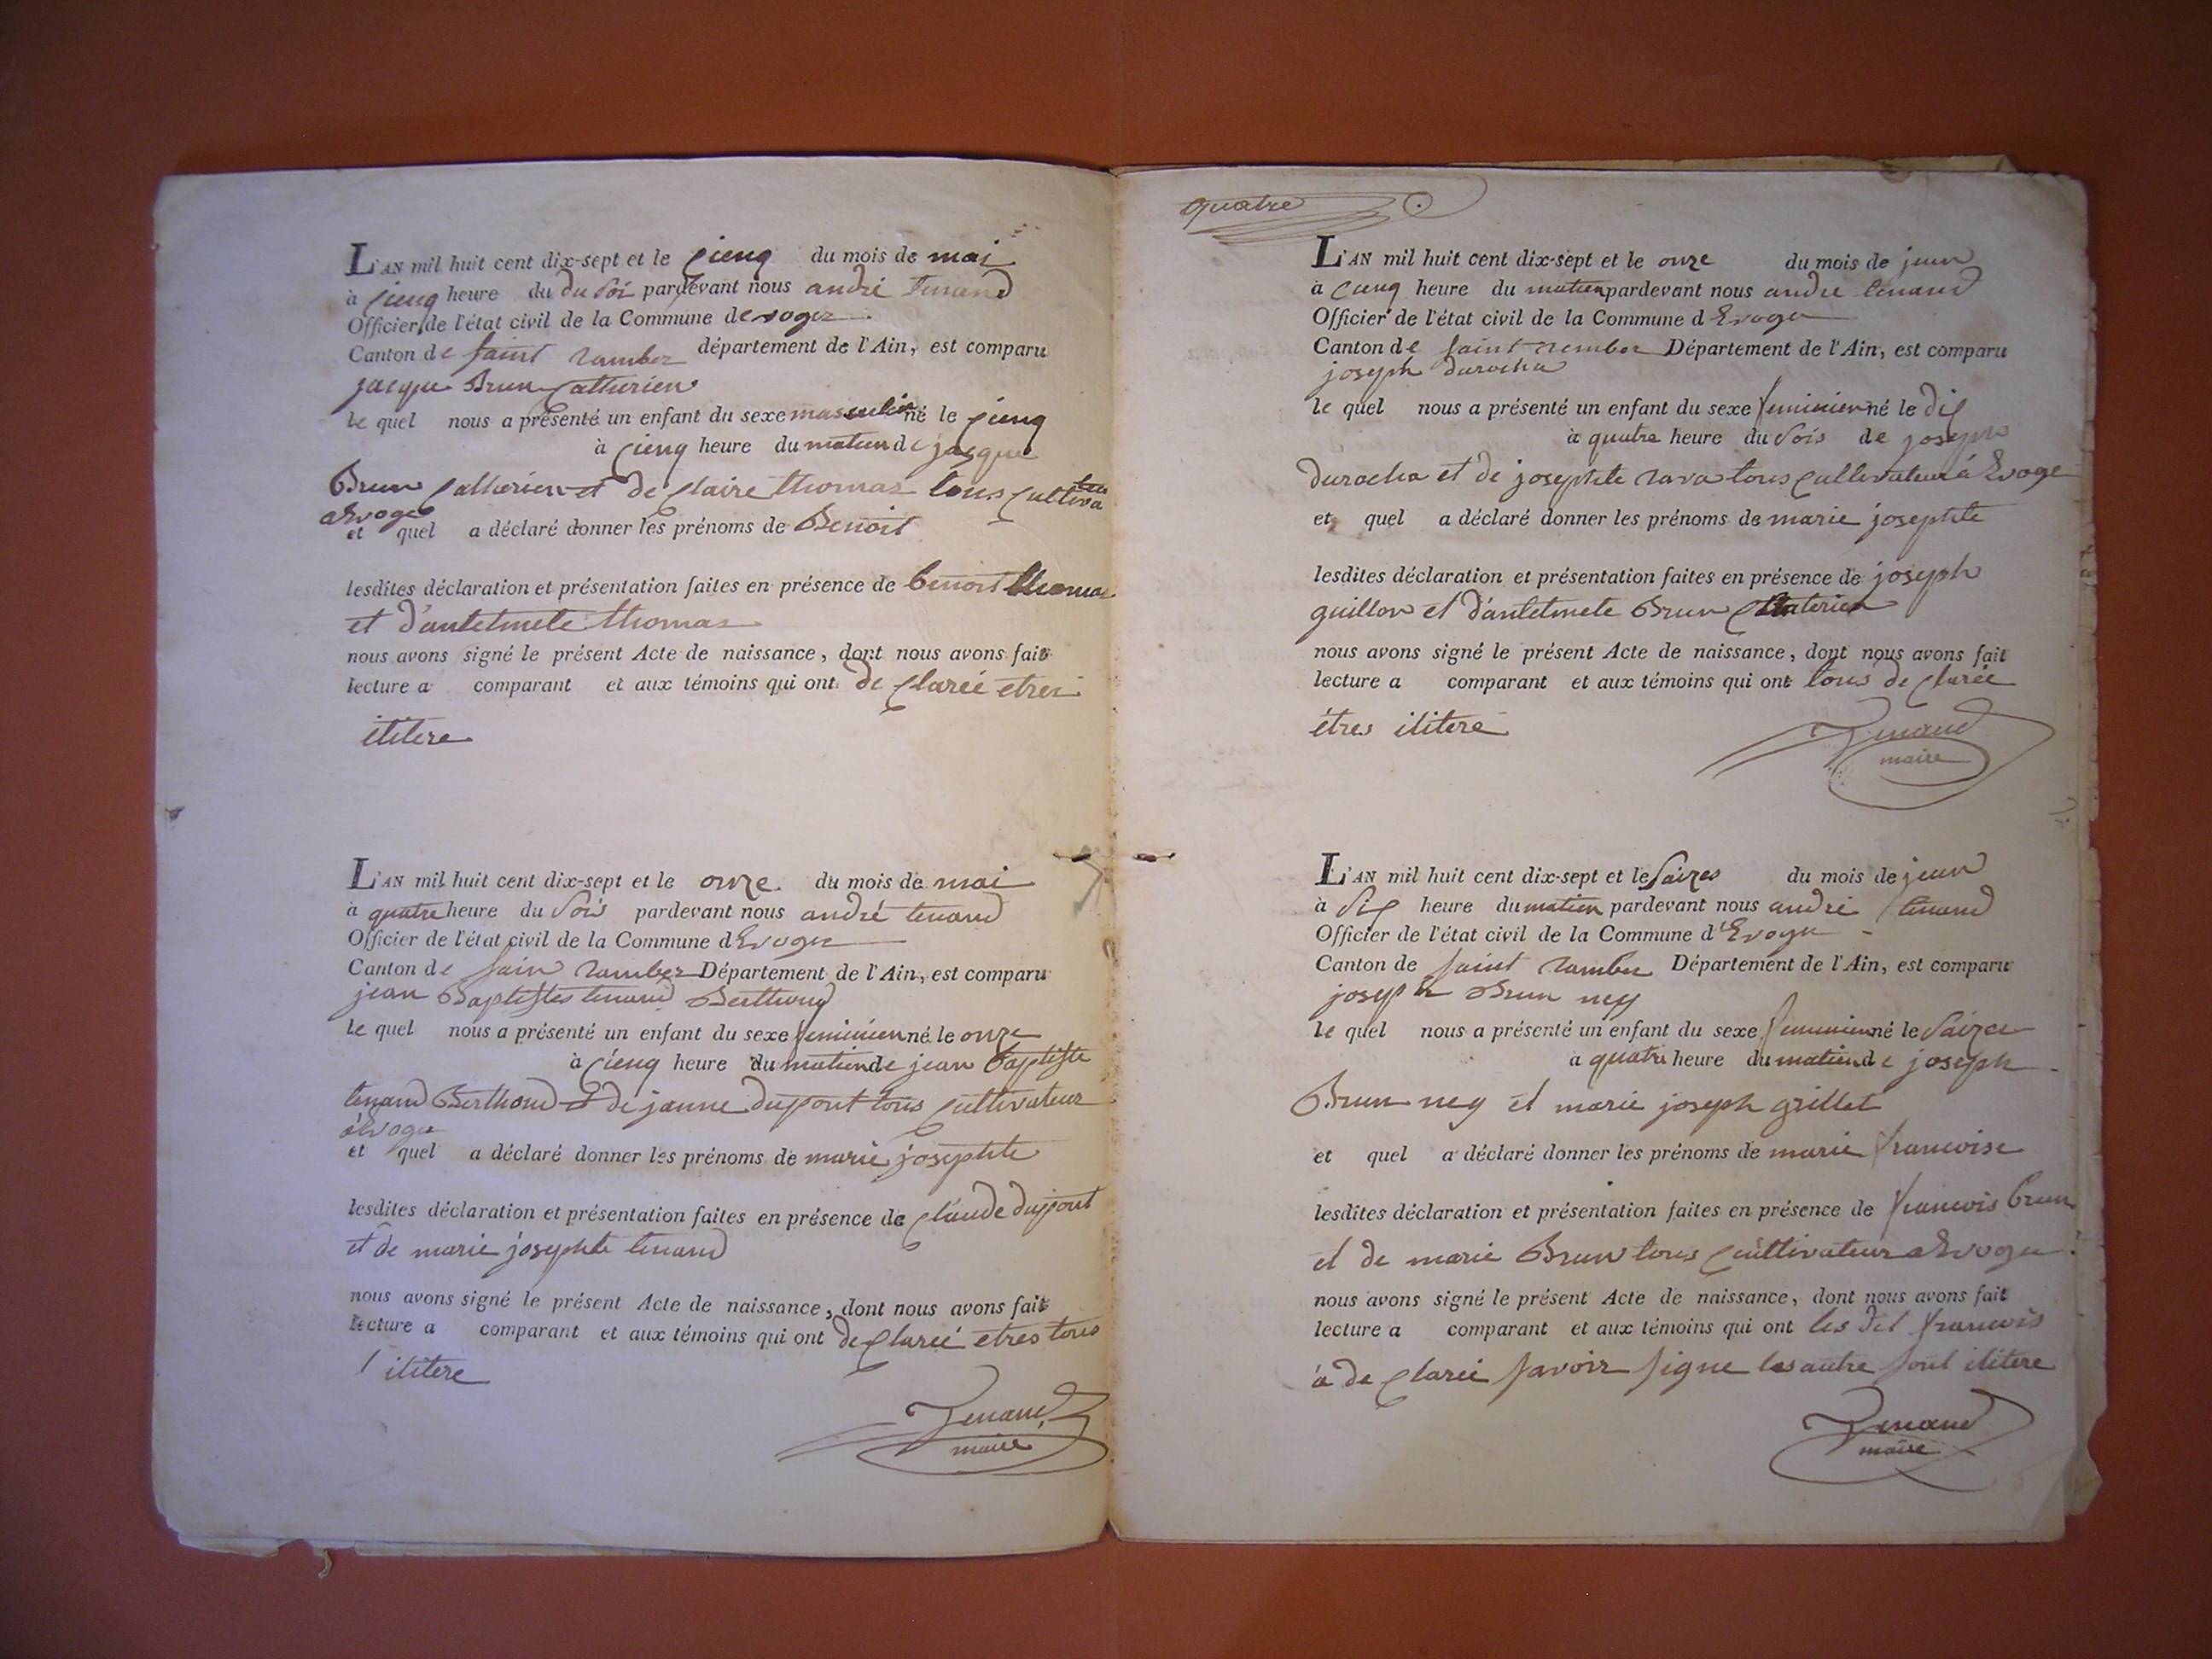 L'AN mil huit cent dix-sept et le cienq du mois de mai
à cienq heure du du soi pardevant nous andré tenand
Officier de l'état civil de la Commune de evoges
Canton de saint ramber département de l'Ain, est comparu
jacque Brun Catherien
le quel nous a présenté un enfant du sexe masculin né le cienq
à cienq heure du matien de jacque
Brun Catherien et de Claire thomas tous cultiva
teur
a Evoges
et quel a déclaré donner les prénoms de Benoit
lesdites déclaration et présentation faites en présence de benoit thomas
et d'antelmete thomas
nous avons signé le présent Acte de naissance, dont nous avons fait
lecture a comparant et aux témoins qui ont de clareé etres
ilitere
L'AN mil huit cent dix-sept et le onze du mois de mai
à quatre heure du Sois pardevant nous andré tenand
Officier de l'état civil de la Commune d Evoges
Canton de sain ramber Département de l'Ain, est comparu
jean Baptistes tenand Berthond
le quel nous a présenté un enfant du sexe feminien né le onze
à cienq heure du matien de jean baptiste
tenand Berthond et de janne dupont tous cultivateur
a Evoges
et quel a déclaré donner les prénoms de marie josephte
lesdites déclaration et présentation faites en présence de claude dupont
et de marie josephte tenand
nous avons signé le présent Acte de naissance, dont nous avons fait
lecture a comparant et aux témoins qui ont de clareé etres tous
ilitere
Tenand
maire
quatre
L'AN mil huit cent dix-sept et le onze du mois de juen
à cienq heure du matien pardevant nous andre tenand
Officier de l'état civil de la Commune d Evoges
Canton de saint rember Département de l'Ain, est comparu
joseph durocha
le quel nous a présenté un enfant du sexe feminien né le dis
à quatre heure du sois de joseph
durocha et de josephte rava tous cultivateur à Evoge
et quel a déclaré donner les prénoms de marie josephte
lesdites déclaration et présentation faites en présence de joseph
guillon et d'antelmete Brun Catterien
nous avons signé le présent Acte de naissance, dont nous avons fait
lecture a comparant et aux témoins qui ont tous de clarée
étres ilitere
Tenand
maire
L'AN mil huit cent dix-sept et le saizes du mois de juen
à sis heure du matien pardevant nous andré tenand
Officier de l'état civil de la Commune d'Evoges
Canton de saint ramber Département de l'Ain, est comparu
joseph Brun ney
le quel nous a présenté un enfant du sexe feminien né le saizes
à quatre heure du matien de joseph
Brun ney et marie joseph grillet
et quel a déclaré donner les prénoms de marie francoise
lesdites déclaration et présentation faites en présence de francois brun
et de marie Brun tous cultivateur a Evoges
nous avons signé le présent Acte de naissance, dont nous avons fait
lecture a comparant et aux témoins qui ont les dit francois
à de clareé savoir signe les autre sont ilitere
Tenand
maire